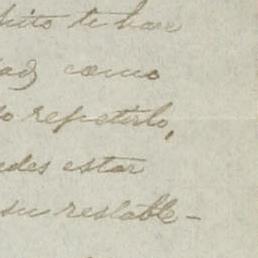 hito te hace
como
o repetirlo,
edes estar
su restable-